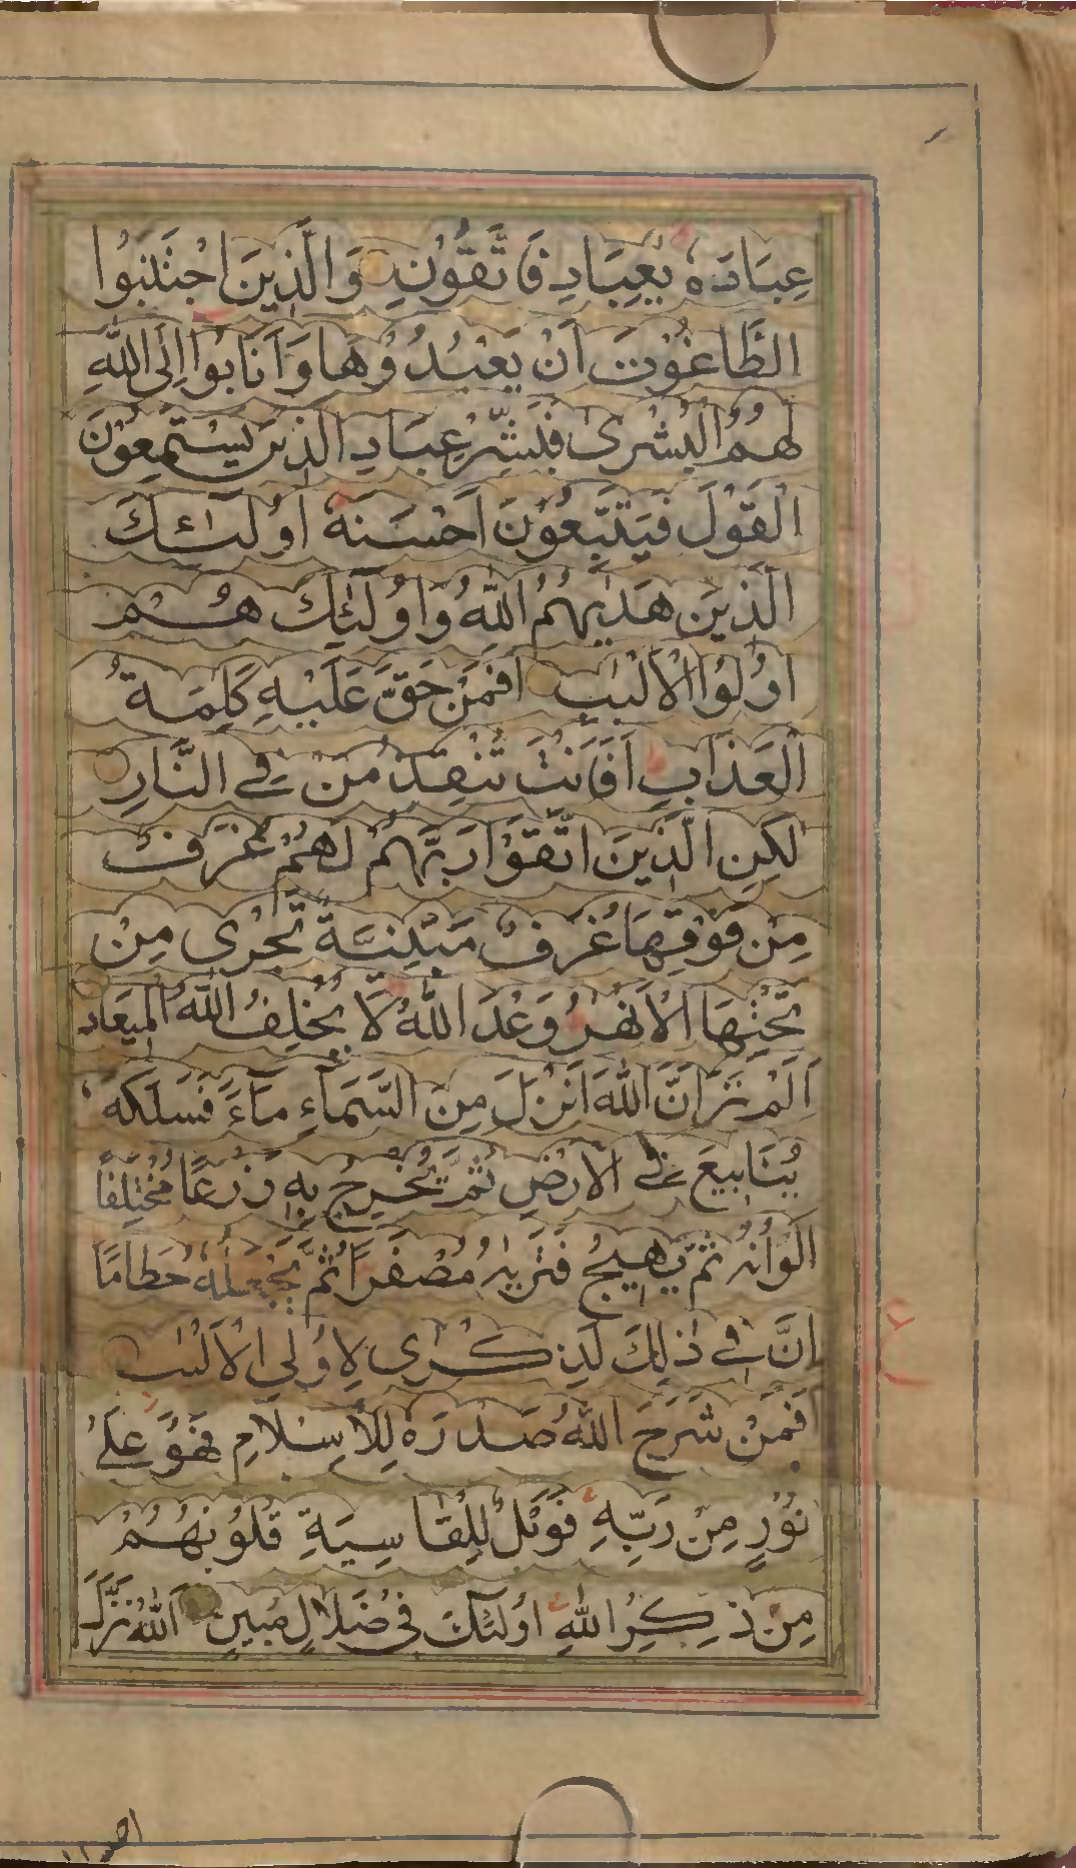 عِبَادَهٗ يٰعِبَادِ فَاتَّقُوْنِ وَالَّذِيْنَ اجْتَنَبُوا
الطَّاغُوْتَ اَنْ يَعْبُدُوْهَا وَاَنَابُوْا اِلَى اللّٰهِ
لَهُمُ الْبُشْرٰى فَبَشِّرْ عِبَادِ الَّذِيْنَ يَسْتَمِعُوْنَ
الْقَوْلَ فَيَتَّبِعُوْنَ اَحْسَنَهٗ اُولٰٓئِكَ
الَّذِيْنَ هَدٰيهُمُ اللّٰهُ وَاُولٰٓئِكَ هُمْ
اُولُوا الْاَلْبٰبِ اَفَمَنْ حَقَّ عَلَيْهِ كَلِمَةُ
الْعَذَابِ اَفَاَنْتَ تُنْقِذُ مَنْ فِي النَّارِ
لٰكِنِ الَّذِيْنَ اتَّقَوْا رَبَّهُمْ لَهُمْ غُرَفٌ
مِنْ فَوْقِهَا غُرَفٌ مَبْنِيَّةٌ تَجْرِى مِنْ
تَحْتِهَا الْاَنْهٰرُ وَعْدَ اللّٰهِ لَا يُخْلِفُ اللّٰهُ الْمِيْعَادَ
اَلَمْ تَرَ اَنَّ اللّٰهَ اَنْزَلَ مِنَ السَّمَآءِ مَآءً فَسَلَكَهٗ
يَنَابِيعَ فِي الْاَرْضِ ثُمَّ يُخْرِجُ بِهٖ زَرْعًا مُخْتَلِفًا
اَلْوَانُهٗ ثُمَّ يَهِيْجُ فَتَرٰيهُ مُصْفَرًّا ثُمَّ يَجْعَلُهٗ حُطَامًا
اِنَّ فِي ذٰلِكَ لَذِكْرٰى لِاُولِي الْاَلْبٰبِ
فَمَنْ شَرَحَ اللّٰهُ صَدْرَهٗ لِلْاِسْلَامِ فَهُوَ عَلٰى
نُوْرٍ مِنْ رَبِّهٖ فَوَيْلٌ لِلْقَاسِيَةِ قُلُوْبُهُمْ
مِنْ ذِكْرِ اللّٰهِ اُولٰٓئِكَ فِي ضَلَالٍ مُبِيْنٍ اَللّٰهُ نَزَّلَ